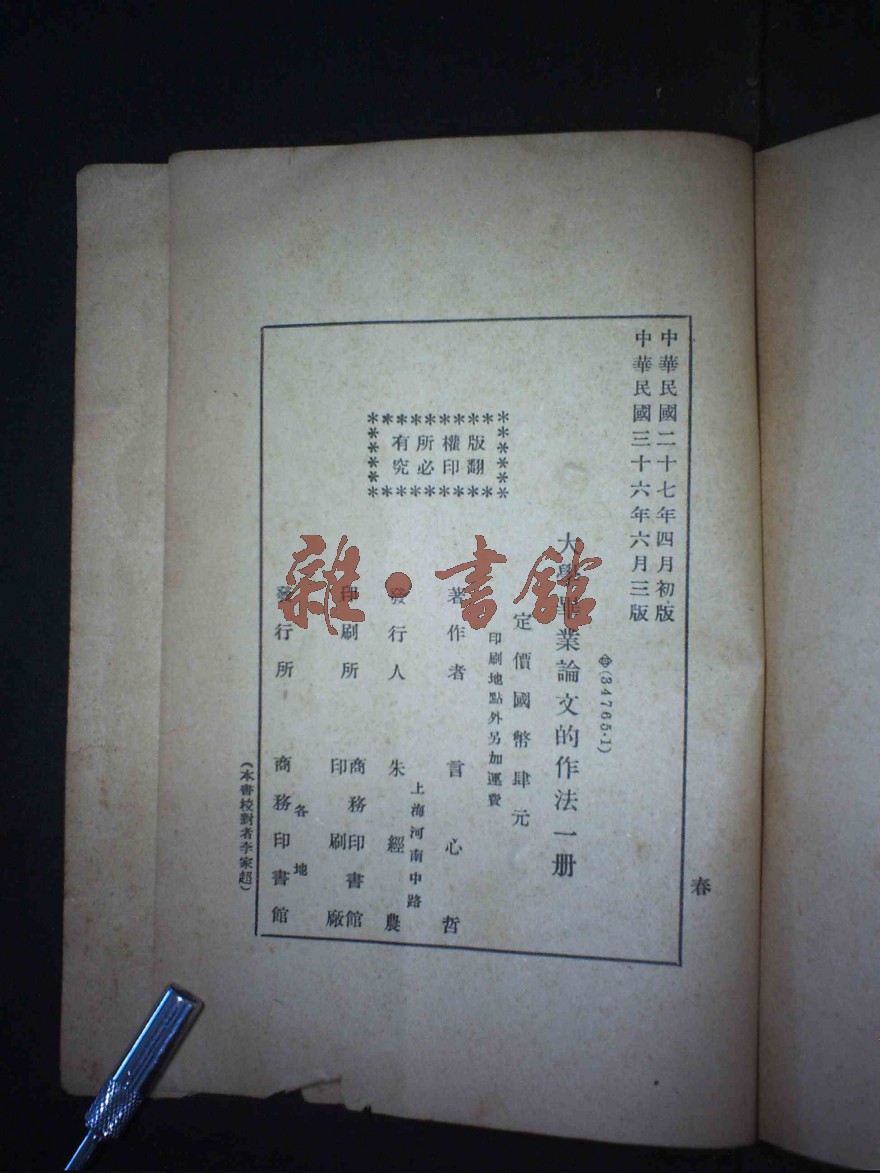 中華民國二十七年四月初版
中華民國三十六年六月三版
(34765·1)
大學畢業論文的作法一册
定價國幣肆元
印刷地點外另加運費
版權所有
翻印必究
著作者 言心哲
上海河南中路
發行人 朱經農
印刷所 商務印書館
印刷廠
各地
發行所 商務印書館
(本書校對者李家超)
春
雜·書館